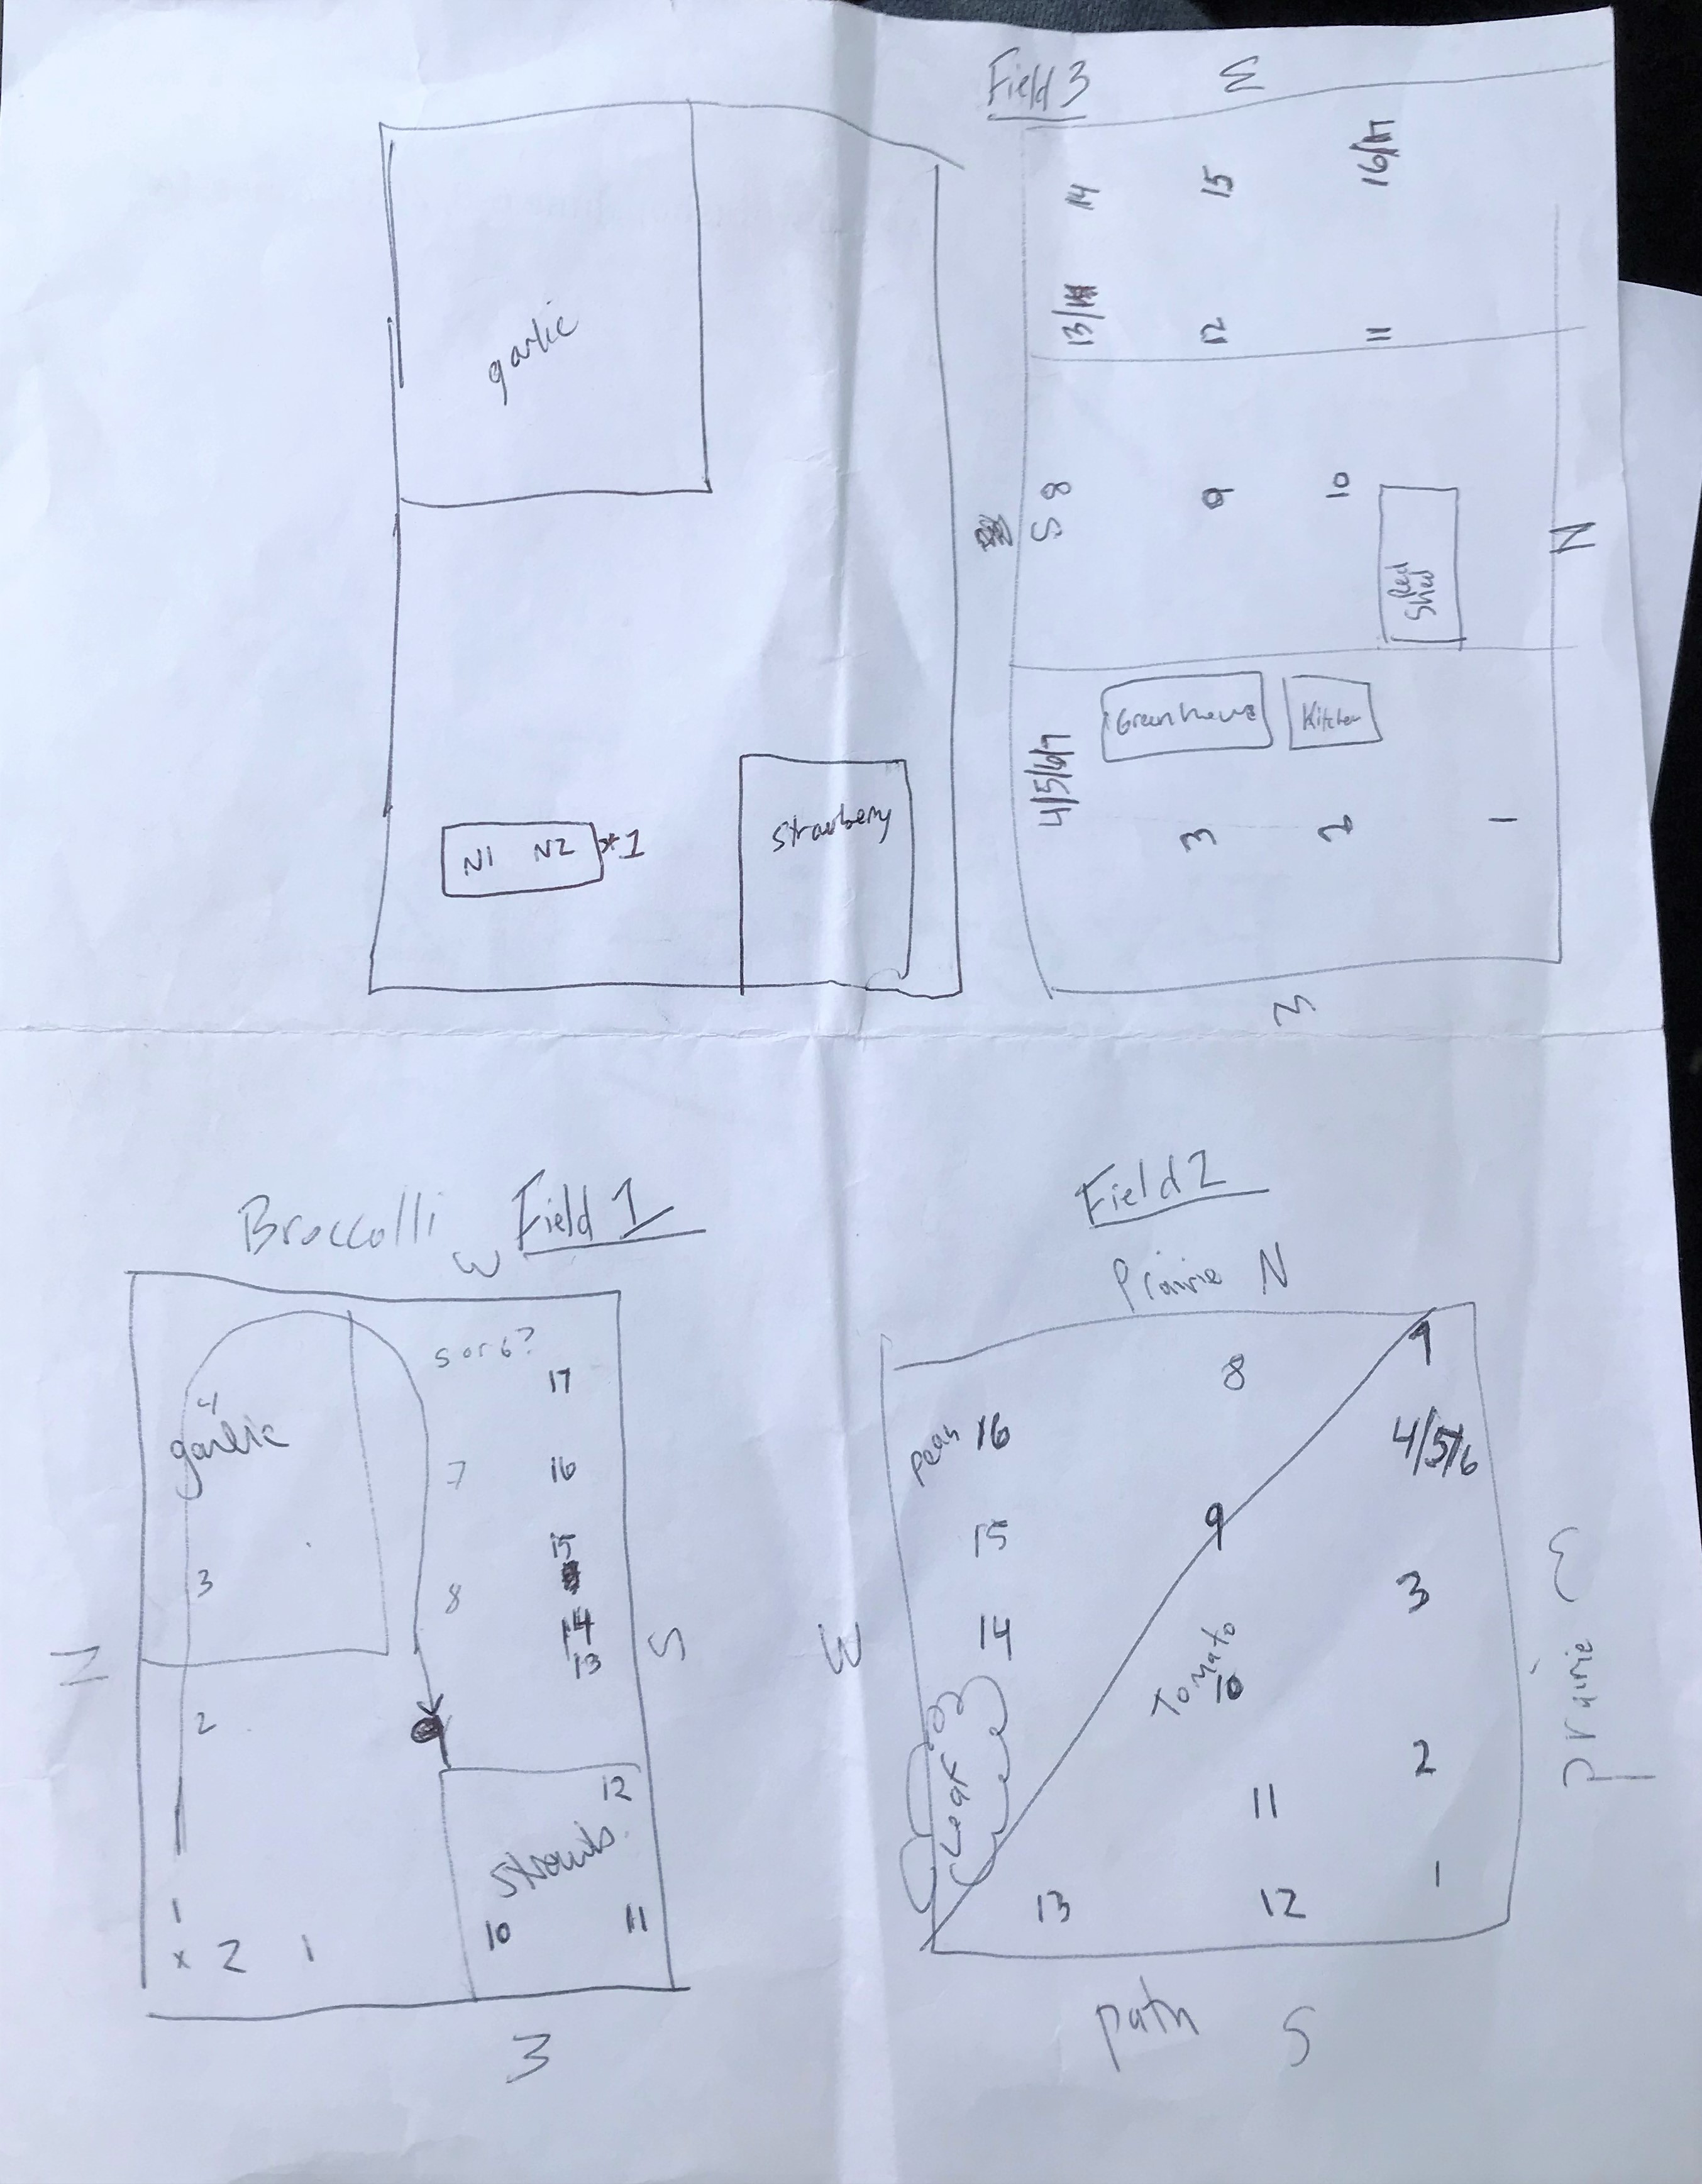 garlic
N1 N2 *1
strawberry
Field 3
E
14 15 16/17
13/14 12 11
S 8 9 10
Red
Shed
N
Greenhouse Kitchen
4/5/6/7 3 2 1
W
Broccolli Field 1
E
5 or 6?
17
4
garlic
7 16
15
3 8
14
13
N S
2
12
strawb.
1 10 11
x 2 1
W
Field 2
Prairie N
9
8
Peas 16 4/5/6
15 9
3
14 Tomato
10
W
Prairie E
Leaf
2
11
1
13 12
path S